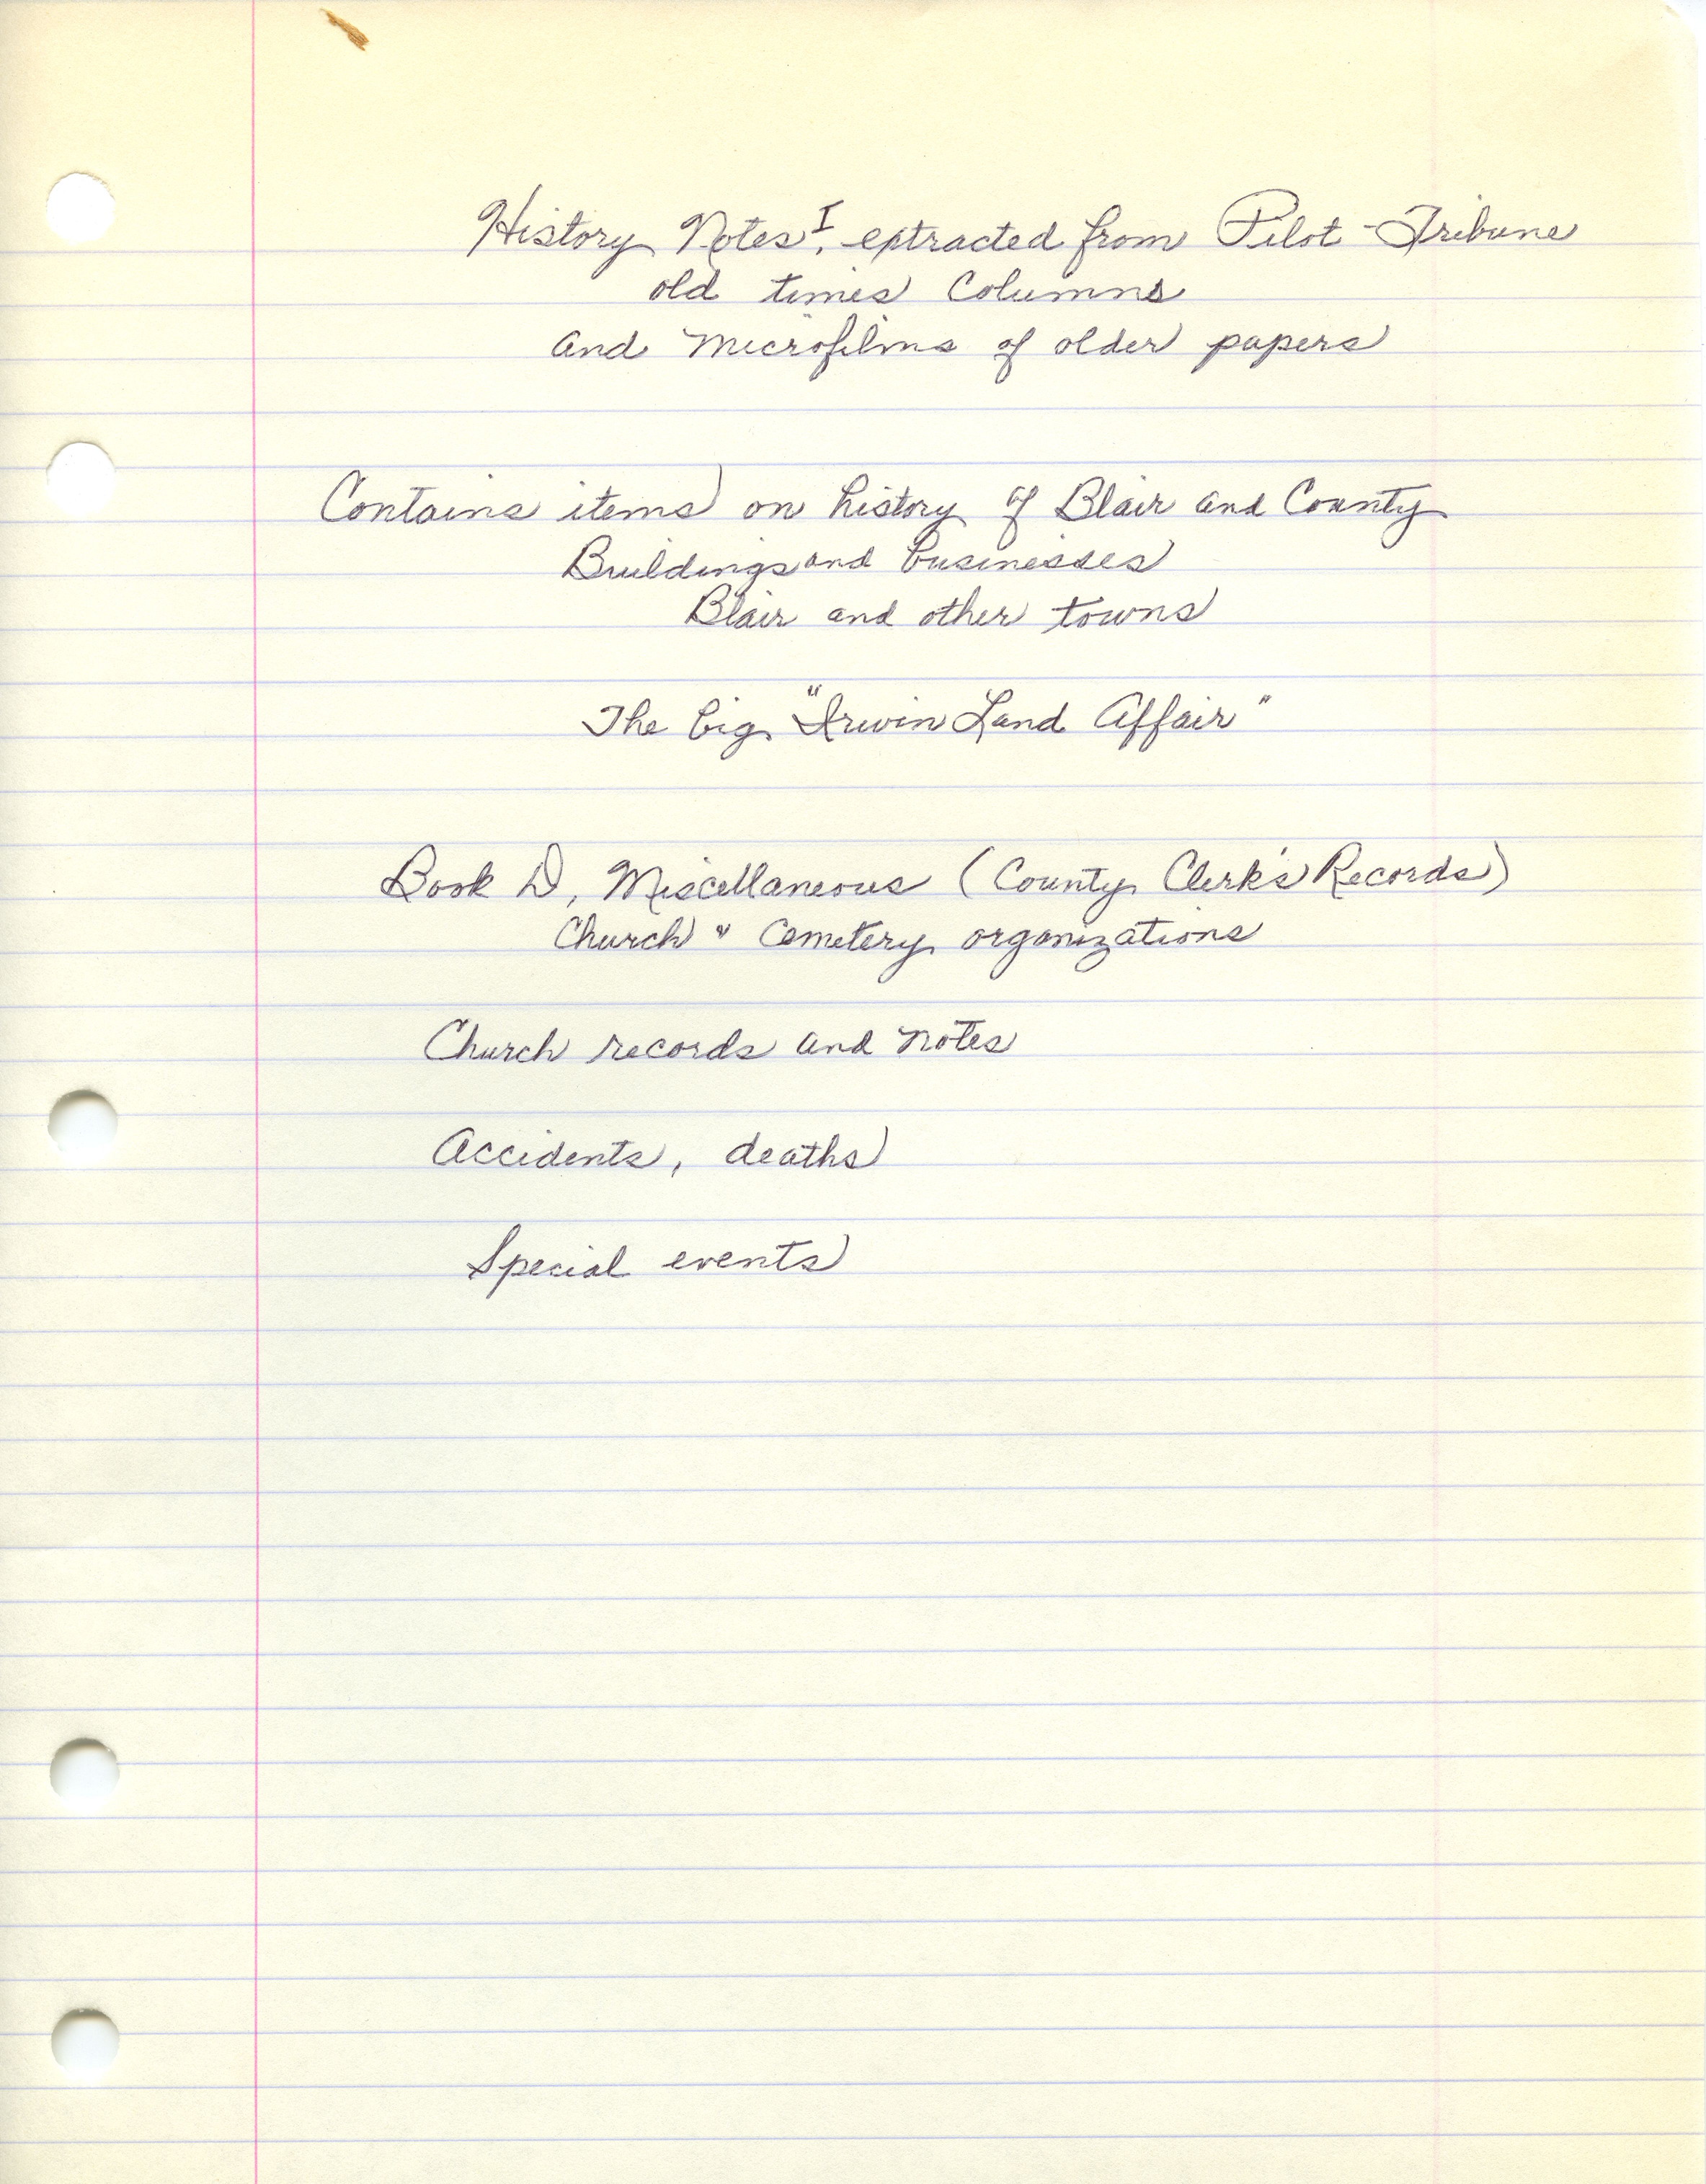 History Notes I, extracted from Pilot-Tribune
old times Columns
and Microfilms of older papers
Contains items on history of Blair and County
Buildings and businesses
Blair and other towns
The big "Irwin Land Affair"
Book D, Miscellaneous (County Clerk's Records)
Church & Cemetery organizations
Church records and notes
Accidents, deaths
Special events